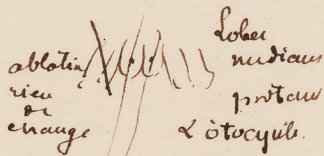 ablation
rien
de
change
Lobes
medians
protans
L'otocyste.